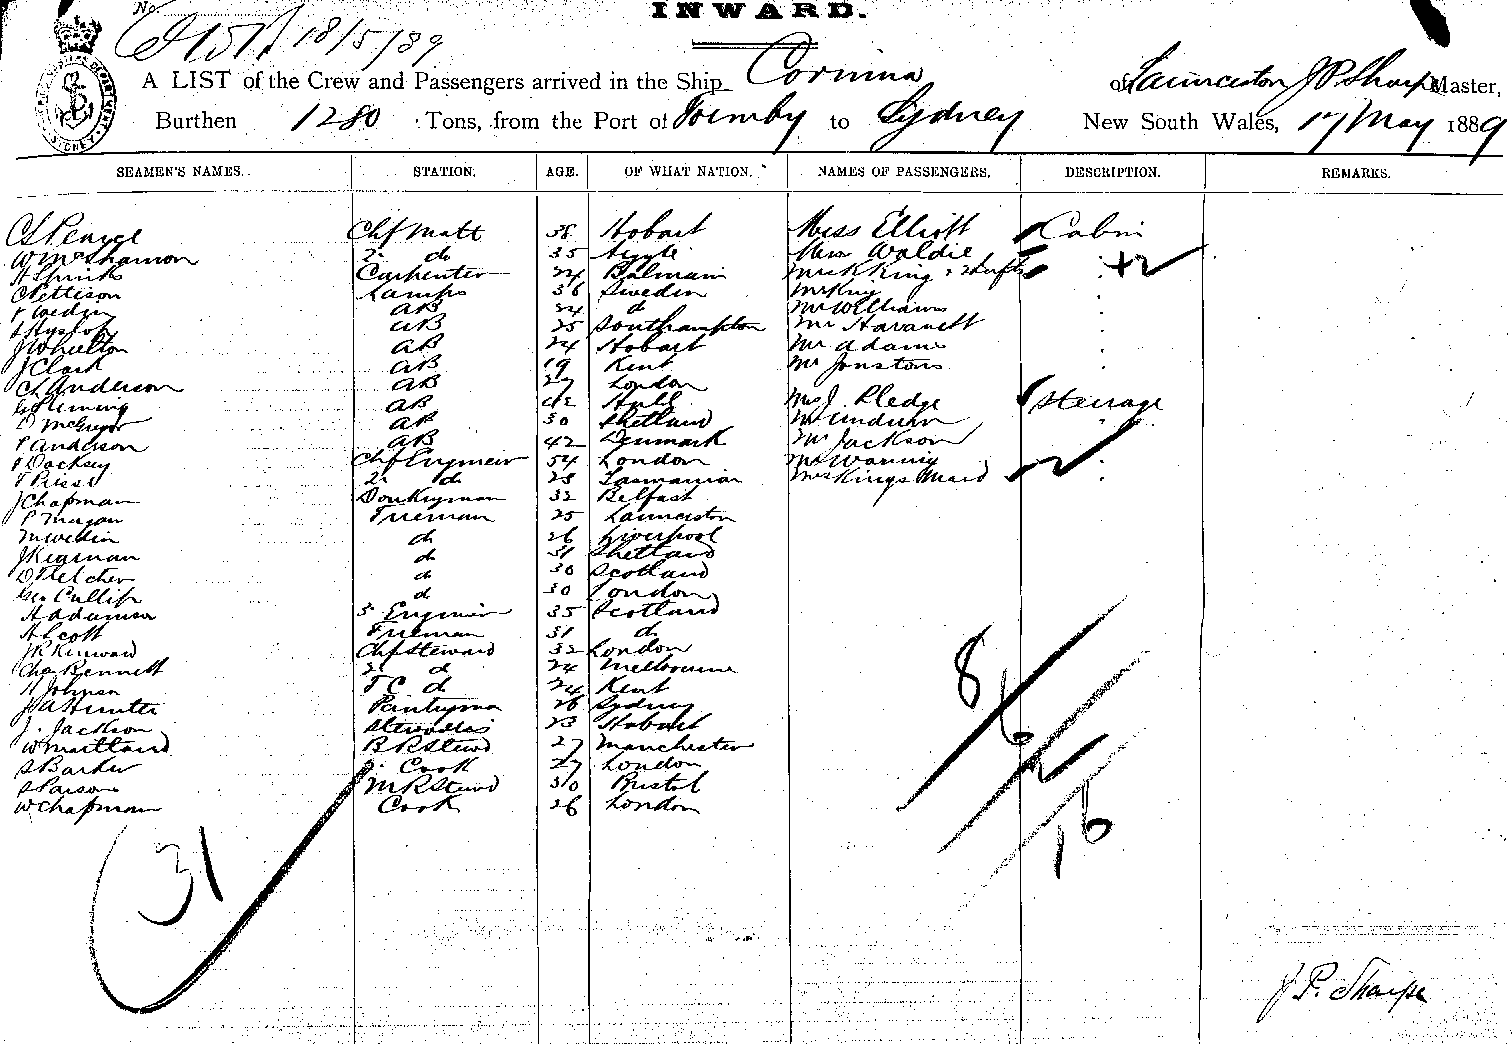 No
INWARD.
18/5/89
A LIST of the Crew and Passengers arrived in the Ship Corinna of Launceston J P Sharpe Master,
Burthen 1280 Tons, from the Port of Formby to Sydney New South Wales, 17 May 1889
SEAMEN'S NAMES. STATION. AGE. OF WHAT NATION. NAMES OF PASSENGERS. DESCRIPTION. REMARKS.
Chf Matt 38 Hobart Miss Elliott Cabin
W McShannon 2 d 35 Argyle Waldie
Carpenter 24 Balmain Mrs K King +2
C Pettison Lamps 36 Sweden Mr King
AB 24 d Mr Williams
J Hyslop AB 25 Southampton Mr
J Whelton AB 24 Hobart Mr Adams
J Clark AB 19 Kent Mr Jonston
Ch Anderson AB 27 London
G Fleming AB 42 Hull Mrs J. Pledge Steerage
D McGregor AB 30 Shetland
P Anderson AB 42 Denmark Mr Jackson
Chf Engineer 54 London Mr Waring
2 d 28 Tasmanian Mrs Kings Maid
J Chapman Donkeyman 32 Belfast
Fireman 25 Launceston
d 26 Liverpool
J Kiernan d 31 Shetland
D Fletcher d 30 Scotland
Geo d 30 London
H Adamson 3 Engineer 35 Scotland
H Scott Fireman 31 d
Chf Steward 32 London
Chas Bennett 2 d 24 Melbourne
H Johnson d 24 Kent
J A Hunter Pantryman 26 Sydney
J. Jackson Stewardess 23 Hobart
W Maitland B R Stewd 27 Manchester
S Barker Cook 27 London
S Parsons M R Stewd 30 Bristol
W Chapman Cook 26 London
8
6
2
16
31
J. P. Sharpe